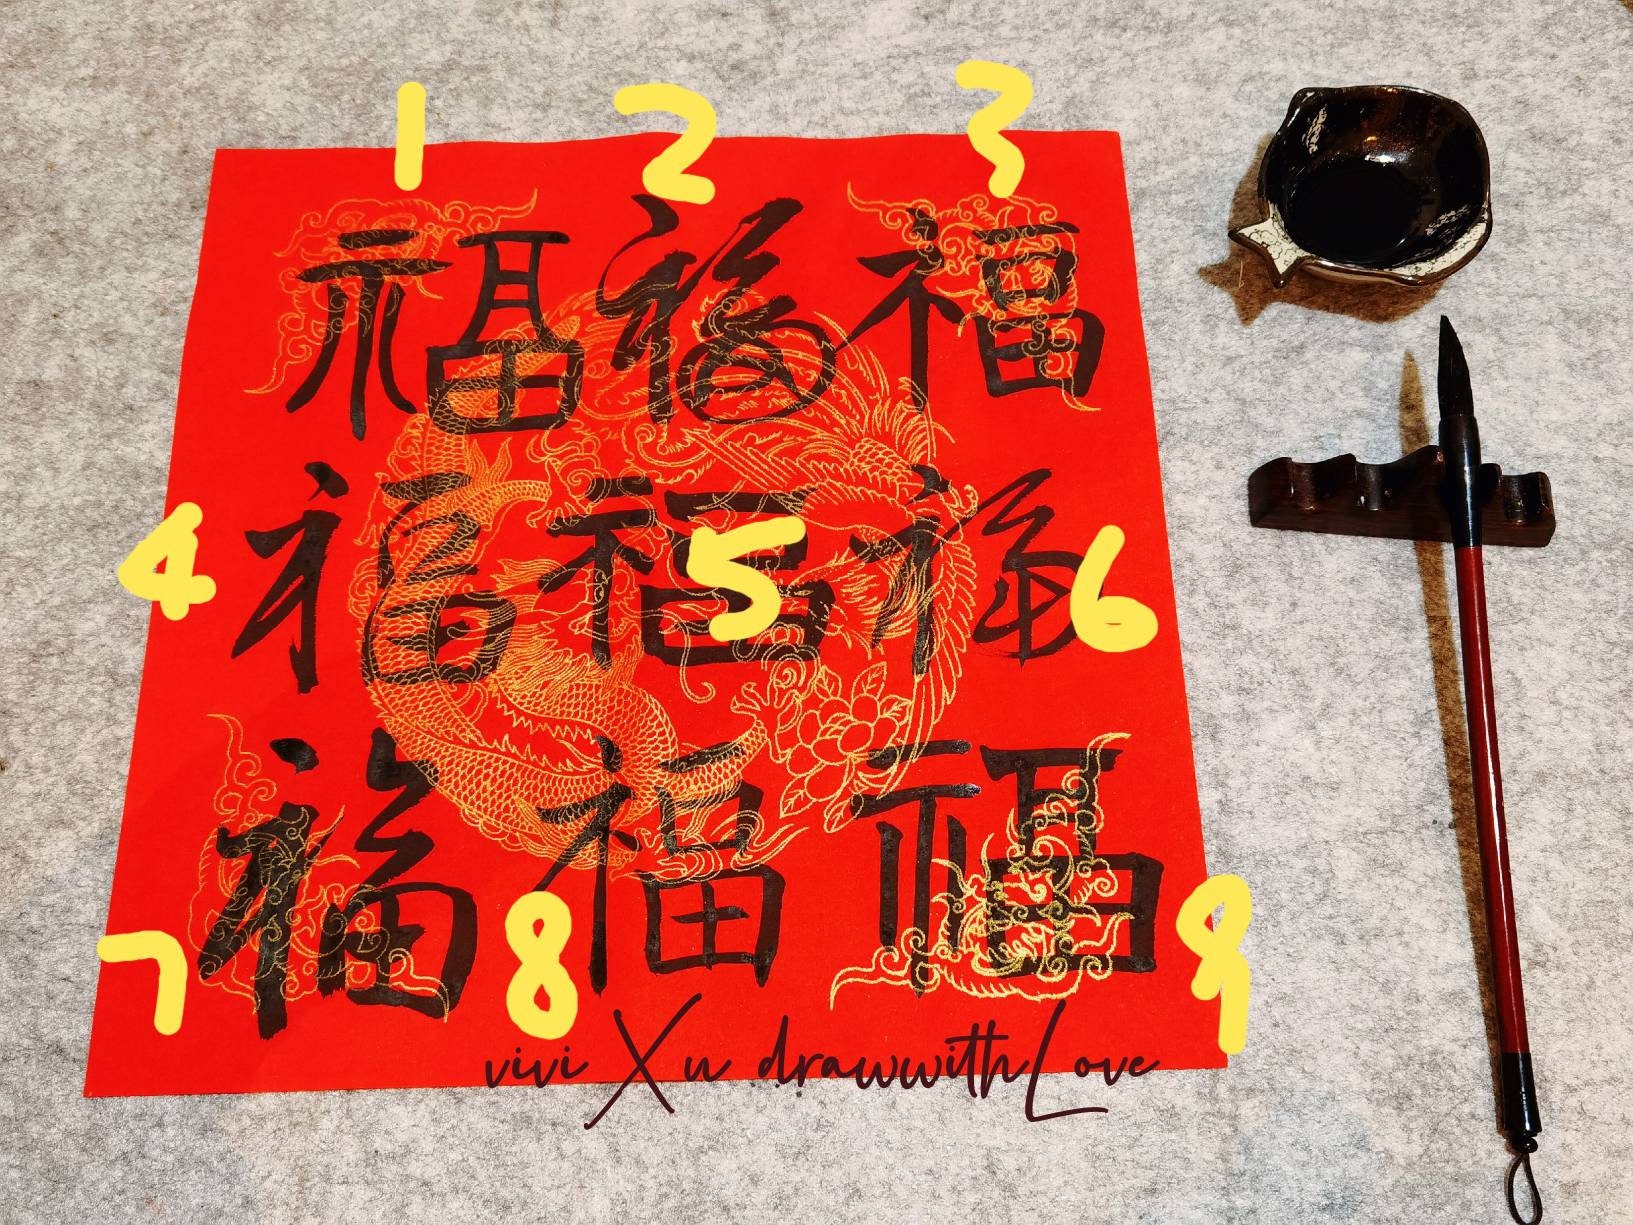 1 2 3
福 福 福
4 5 6
福 福 福
福 福 福
7 8 9
vivi Xu drawwithLove